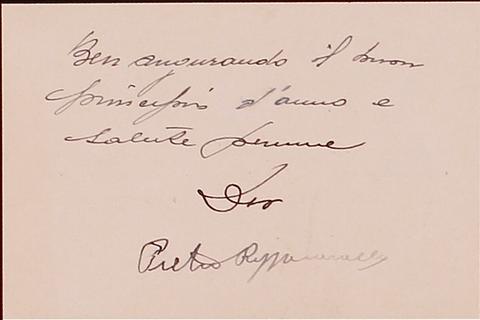 Ben augurando il buon
principio d'anno e
salute perenne
Pietro